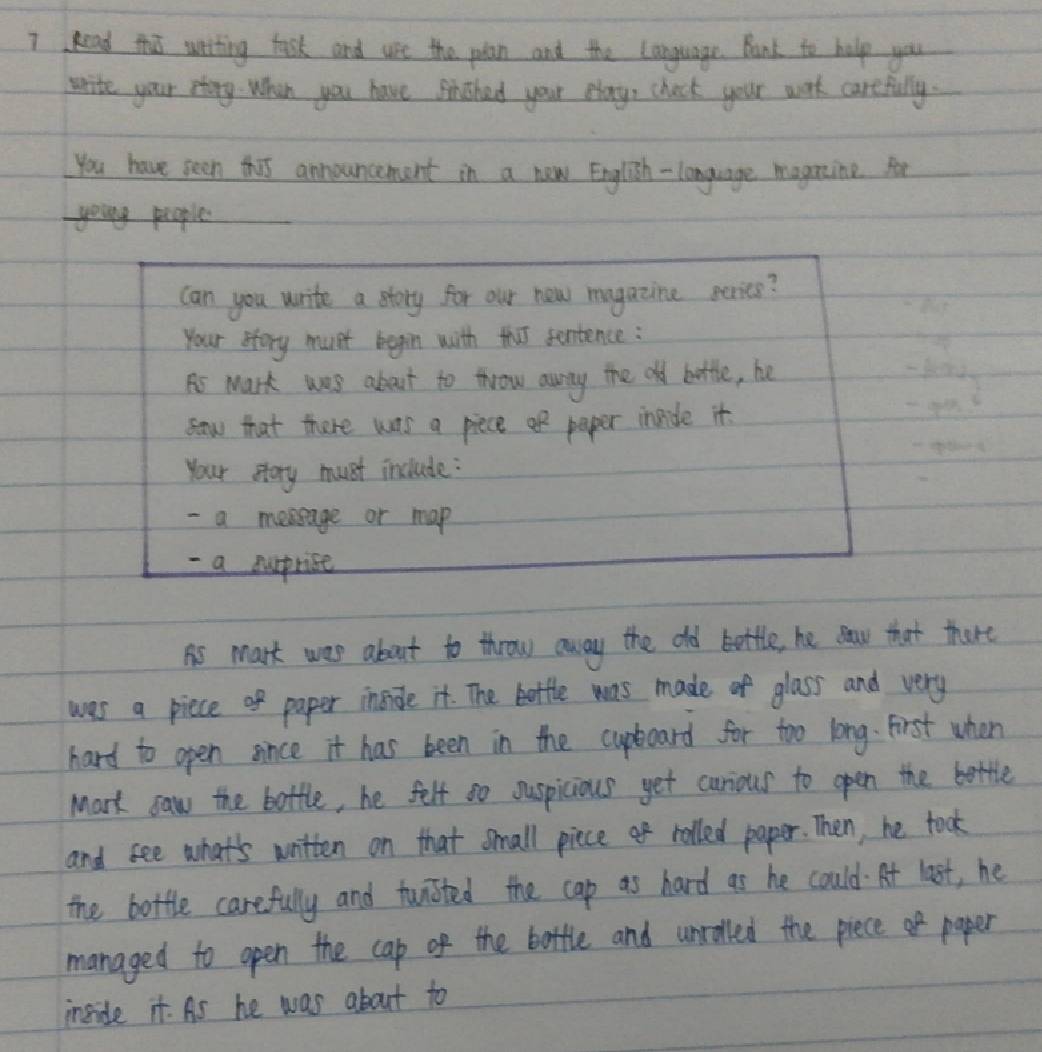 7 Read this writing task and use the plan and the Language Bank to help you
write your story. When you have finished your story, check your work carefully.
You have seen this announcement in a new English-language magazine for
young people.
Can you write a story for our new magazine series?
Your story must begin with this sentence:
As Mark was about to throw away the old bottle, he
saw that there was a piece of paper inside it.
Your story must include:
- a message or map
- a surprise
As Mark was about to throw away the old bottle, he saw that there
was a piece of paper inside it. The bottle was made of glass and very
hard to open since it has been in the cupboard for too long. First when
Mark saw the bottle, he felt so suspicious yet curious to open the bottle
and see what's written on that small piece of rolled paper. Then, he took
the bottle carefully and twisted the cap as hard as he could. At last, he
managed to open the cap of the bottle and unrolled the piece of paper
inside it. As he was about to